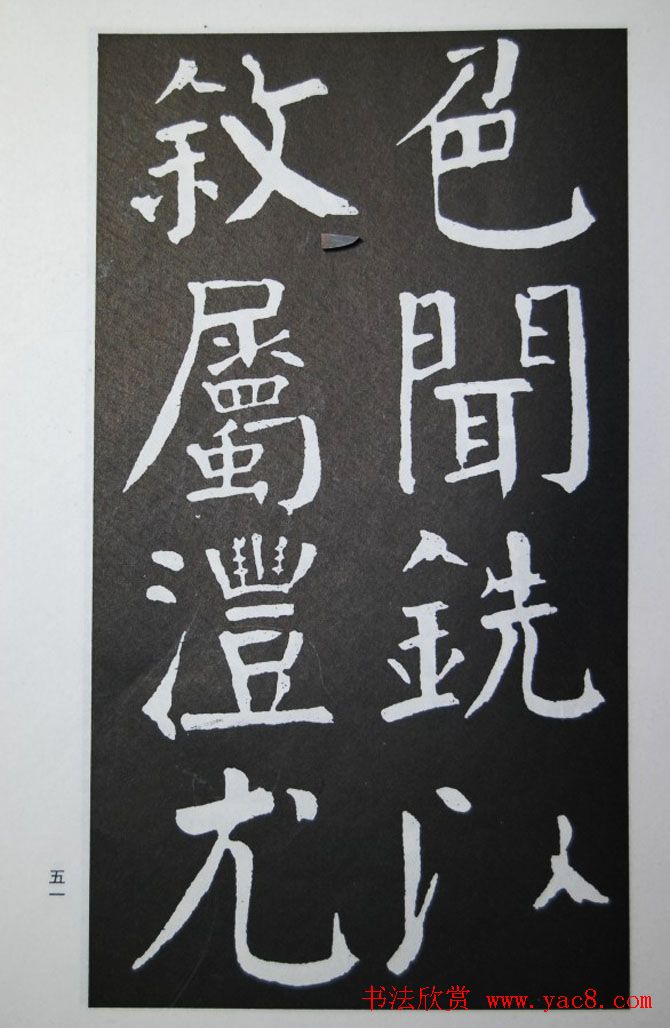 色聞銑以
敘屬澧尤
五一
书法欣赏 www.yac8.com